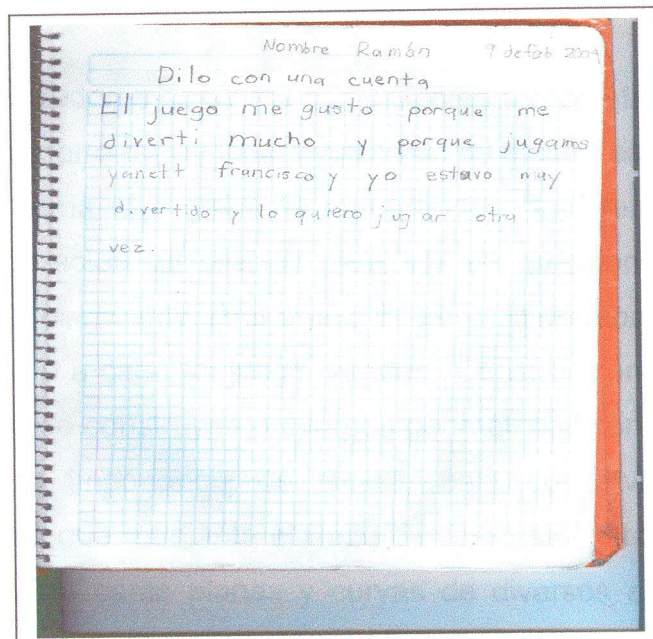 Nombre Ramón 9 de feb 2009
Dilo con una cuenta
El juego me gusto porque me
diverti mucho y porque jugamos
yanett francisco y yo estavo muy
divertido y lo quiero jugar otra
vez.